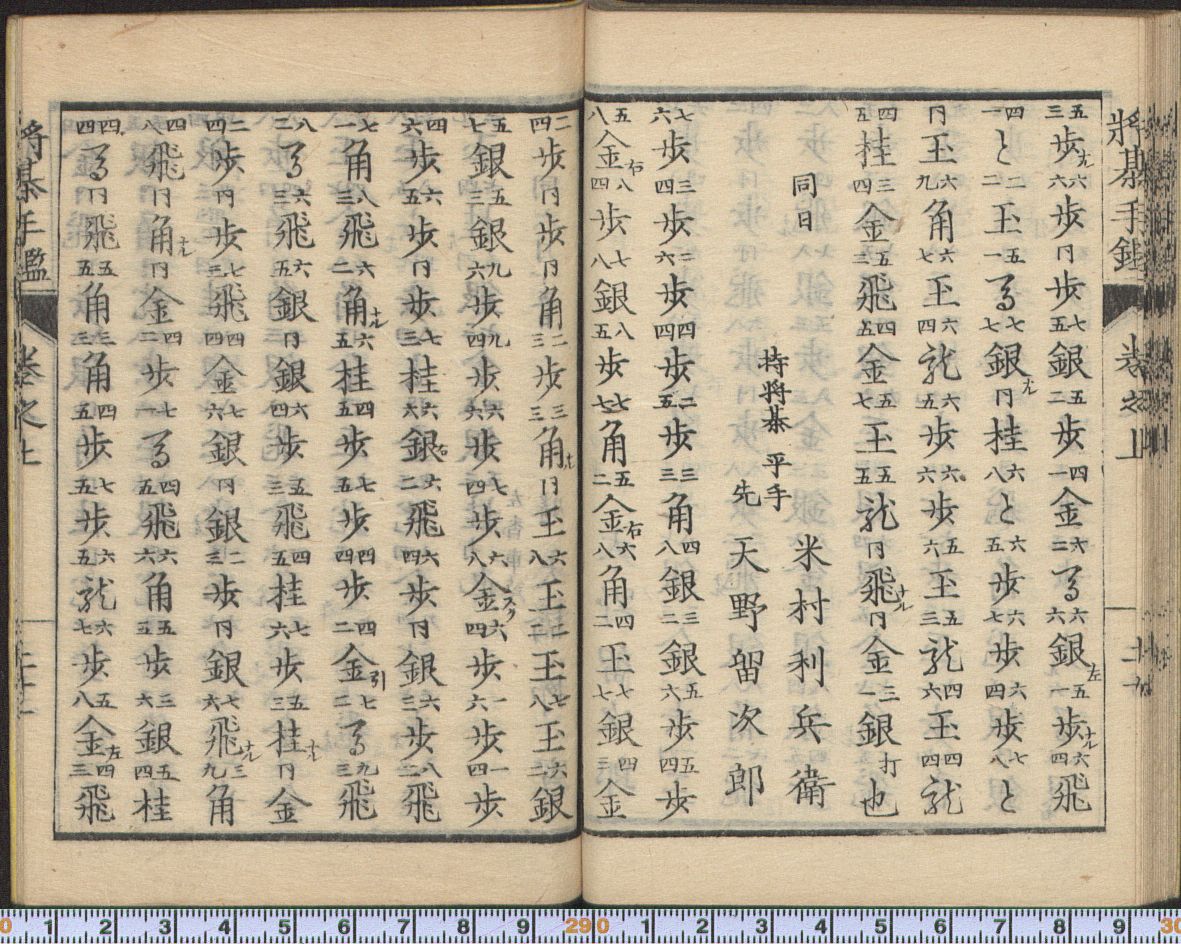 將棊手鑑 巻之上
五三歩ナル六六歩同歩七五銀五二歩四一金六二馬六六銀左五一歩ナル六四飛
四一と二二玉五一馬七七銀ナル同桂六八と六五歩六七歩六四歩七八と
同玉六九角六七玉六四龍六五歩六六歩五六玉五三龍四六玉四四龍
四五桂三四金五三飛四五金五七玉五五龍同飛ナル同金三一銀打也
同日 米村利兵衛
持将棊 平手 先 天野留次郎
七六歩三四歩二六歩四四歩二五歩三三角四八銀三二銀五六歩五四歩
五八金右八四歩七八銀八五歩七七角五二金右六八角四二玉七七銀四三金
二四歩同歩同角二三歩三三角ナル同玉六八玉二二玉七八玉六二銀
五七銀五三銀九六歩九四歩六六歩七四歩六八金六四歩一六歩一四歩
四六歩六五歩同歩七三桂六六銀六二飛六四歩同銀六三歩八二飛
七一角八三飛六二角ナル六五桂四五歩七五歩四四歩四二金引七二馬九三飛
八二馬六三飛六五銀同銀六四歩五三飛四五桂七六歩五三桂ナル同金
二四歩同歩七三飛四四金七六銀同銀二三歩同銀七三飛ナル三九角
四八飛同角ナル同金四二歩七一馬四五飛六六角五五歩三六銀五四桂
四四馬同飛五五角三三角四五歩七五歩六五龍六七歩五八金左四三飛
將棊手鑑 巻之上